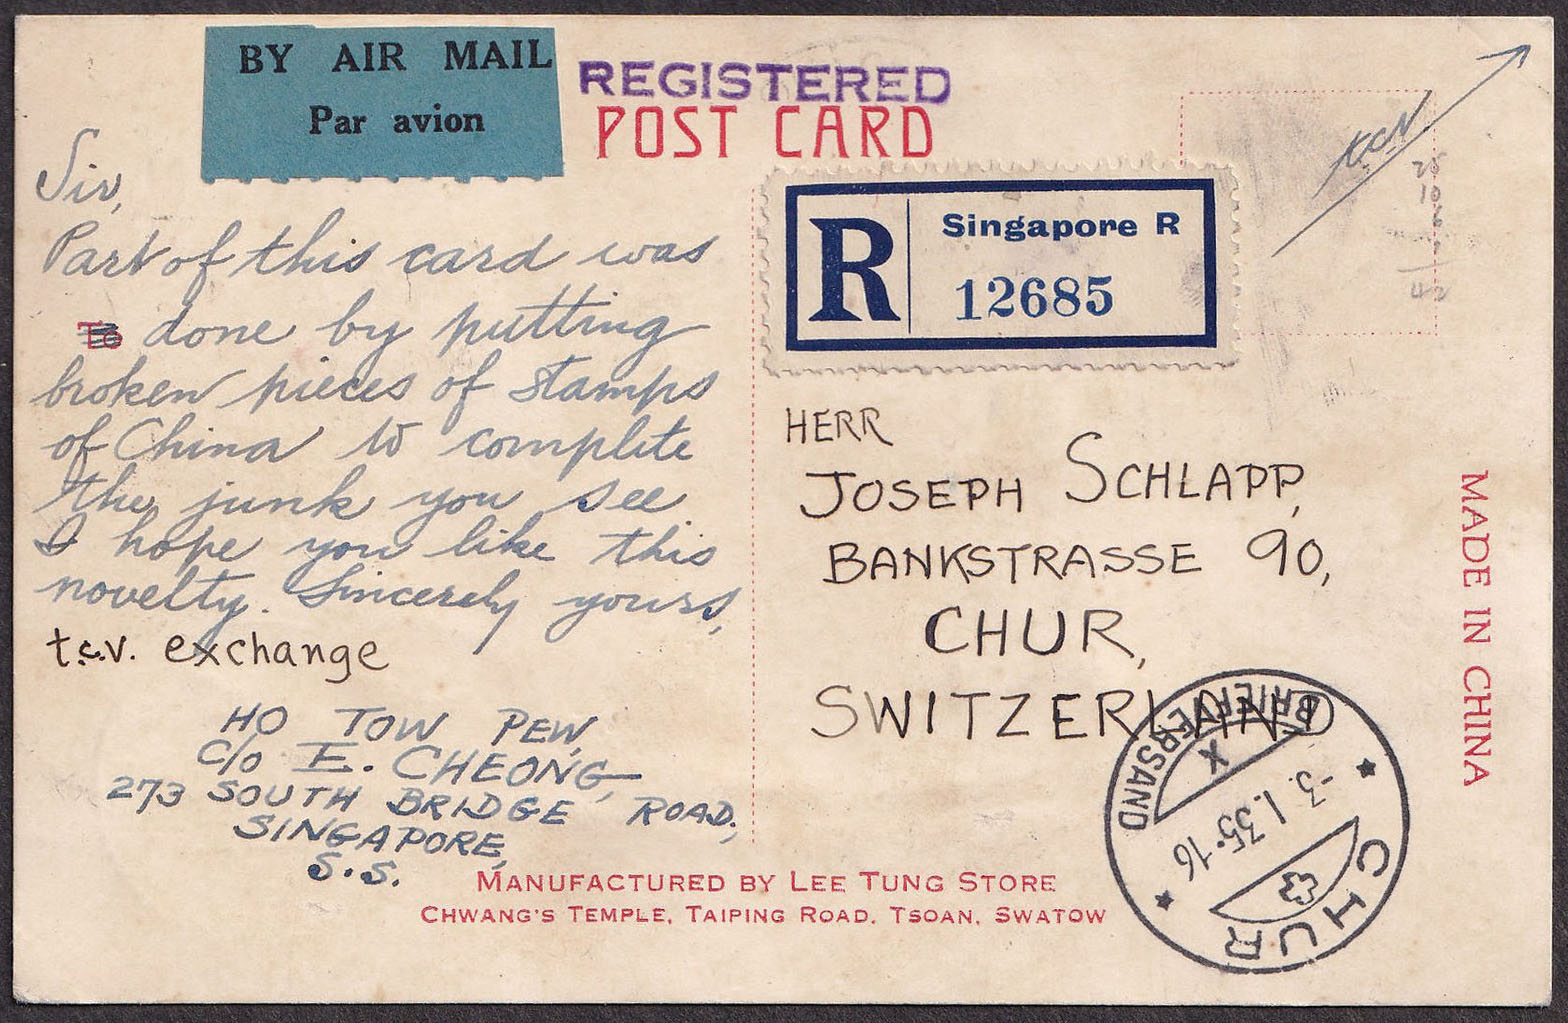 BY AIR MAIL
Par avion
REGISTERED
POST CARD
Sir,
Part of this card was
To done by putting
broken pieces of stamps
of China to complete
the junk you see.
I hope you like this
novelty. Sincerely yours,
t.c.v. exchange
HO TOW PEW,
C/O E. CHEONG,
273 SOUTH BRIDGE ROAD,
SINGAPORE,
S.S.
R
Singapore R
12685
HERR
JOSEPH SCHLAPP,
BANKSTRASSE 90,
CHUR,
SWITZERLAND
MADE IN CHINA
BRIEFVERSAND
X
-3.1.35-16
CHUR
MANUFACTURED BY LEE TUNG STORE
CHWANG'S TEMPLE, TAIPING ROAD, TSOAN, SWATOW